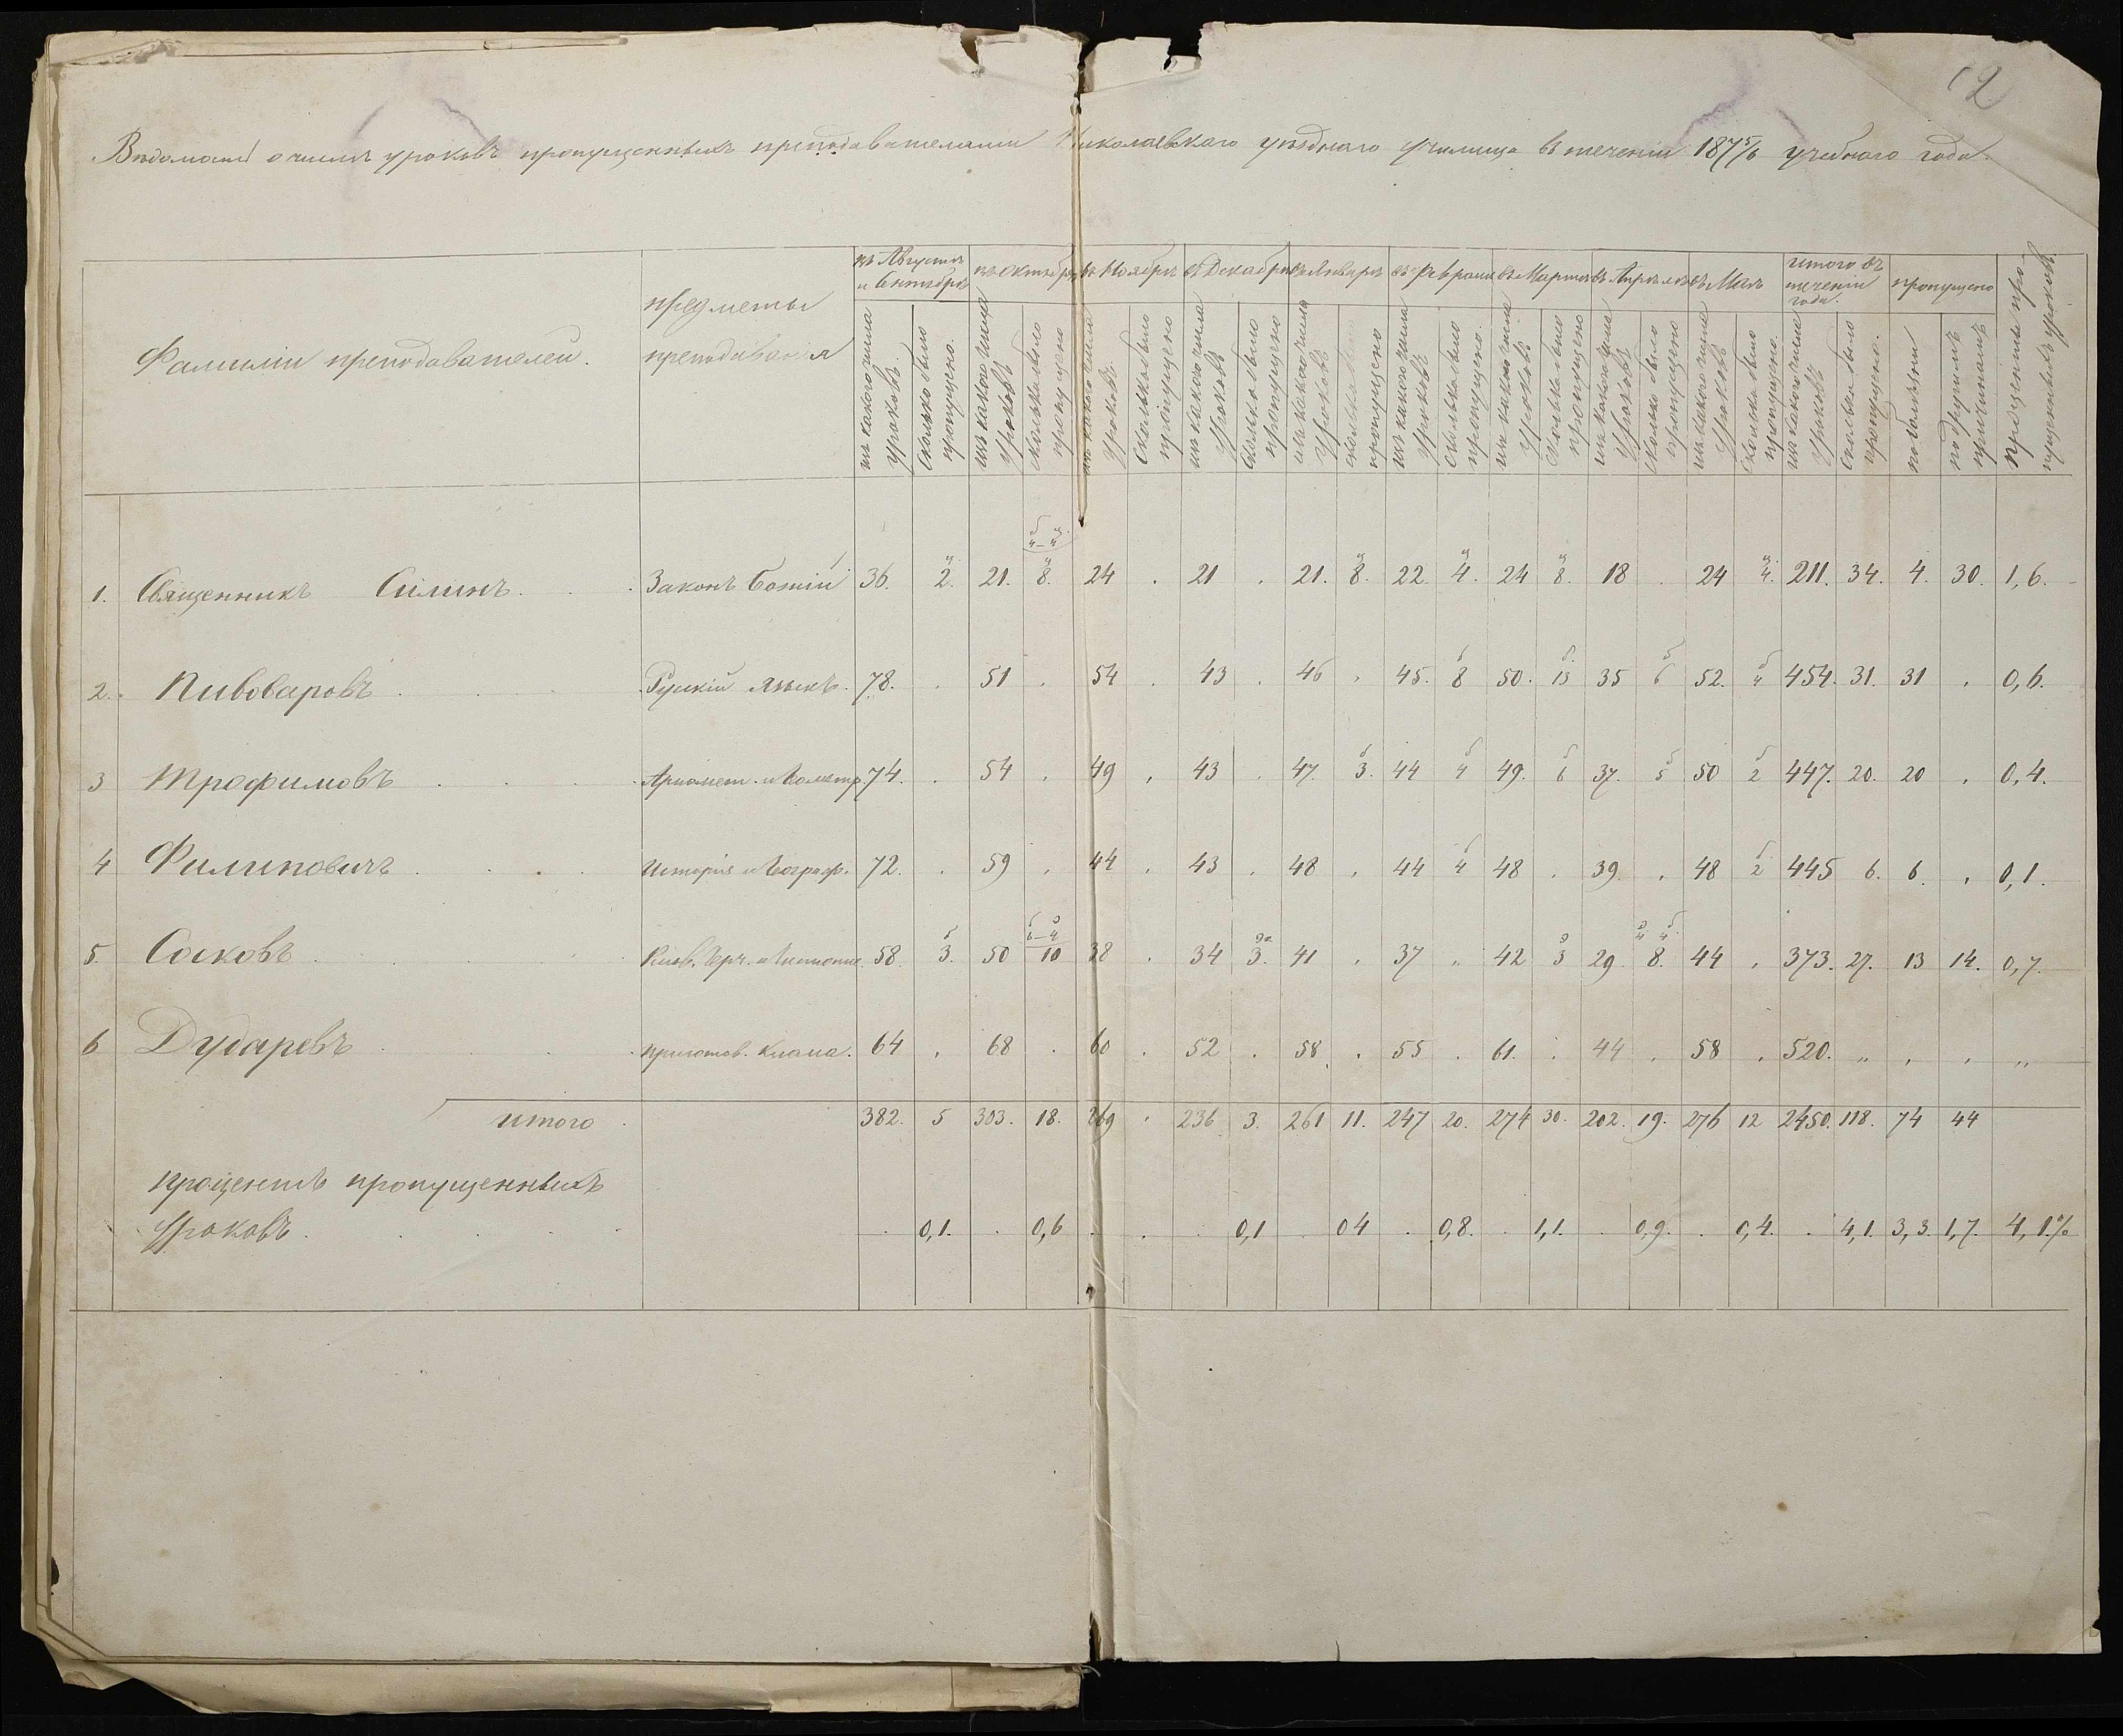 12
Вѣдомость о числѣ уроковъ пропущенныхъ преподавателями Николаевскаго уѣзднаго училища въ теченіи 187⁵/₆ учебнаго года.
Фамиліи преподавателей.
предметы преподаванія
въ Августѣ и Сентябрѣ
въ Октябрѣ
въ Ноябрѣ
въ Декабрѣ
въ Январѣ
въ Февралѣ
въ Мартѣ
въ Апрѣлѣ
въ Маѣ
итого въ теченіи года.
пропущено
проценты пропущенныхъ уроковъ.
изъ какого числа уроковъ. сколько было пропущено.
изъ какого числа уроковъ сколько было пропущено
изъ какого числа уроковъ. сколько было пропущено
изъ какого числа уроковъ сколько было пропущено
изъ какого числа уроковъ сколько было пропущено
изъ какого числа уроковъ сколько было пропущено.
изъ какого числа уроковъ сколько было пропущено
изъ какого числа уроковъ сколько было пропущено
изъ какого числа уроковъ сколько было пропущено.
изъ какого числа уроковъ сколько было пропущено.
по болѣзни
по другимъ причинамъ
1. Священникъ Силинъ. Законъ Божій 36. 2. 21. 8. 24 . 21 . 21. 8. 22 4. 24 8. 18 . 24 4. 211. 34. 4. 30. 1,6.
2. Пивоваровъ Русскій языкъ. 78. . 51 . 54 . 43 . 46 . 45. 8 50. 13 35 6 52. 4 454. 31. 31 . 0,6.
3 Трофимовъ Ариѳмет. и Геометр. 74. . 54 . 49 . 43 . 47. 3. 44 4 49. 6 37. 5 50 2 447. 20. 20 . 0,4.
4 Филиповичъ Исторія и Географ. 72. . 59 . 44 . 43 . 48 . 44 4 48 . 39. . 48 2 445 6. 6. . 0,1.
5. Сосковъ 58. 3. 50 10 38 . 34 3. 41 . 37 „ 42 3 29. 8. 44 . 373. 27. 13 14. 0,7.
6 Дударевъ приготов. класса. 64 . 68 . 60 . 52 . 58 . 55 . 61. . 44 . 58 . 520. „ . . „
итого 382. 5 303. 18. 269 . 236 3. 261 11. 247 20. 274 30. 202. 19. 276 12 2450. 118. 74 44
процентъ пропущенныхъ
уроковъ. . 0,1. . 0,6 . . . 0,1 . 04 . 0,8. . 1,1. . 0,9. . 0,4. . 4,1. 3,3. 1,7. 4,1.%